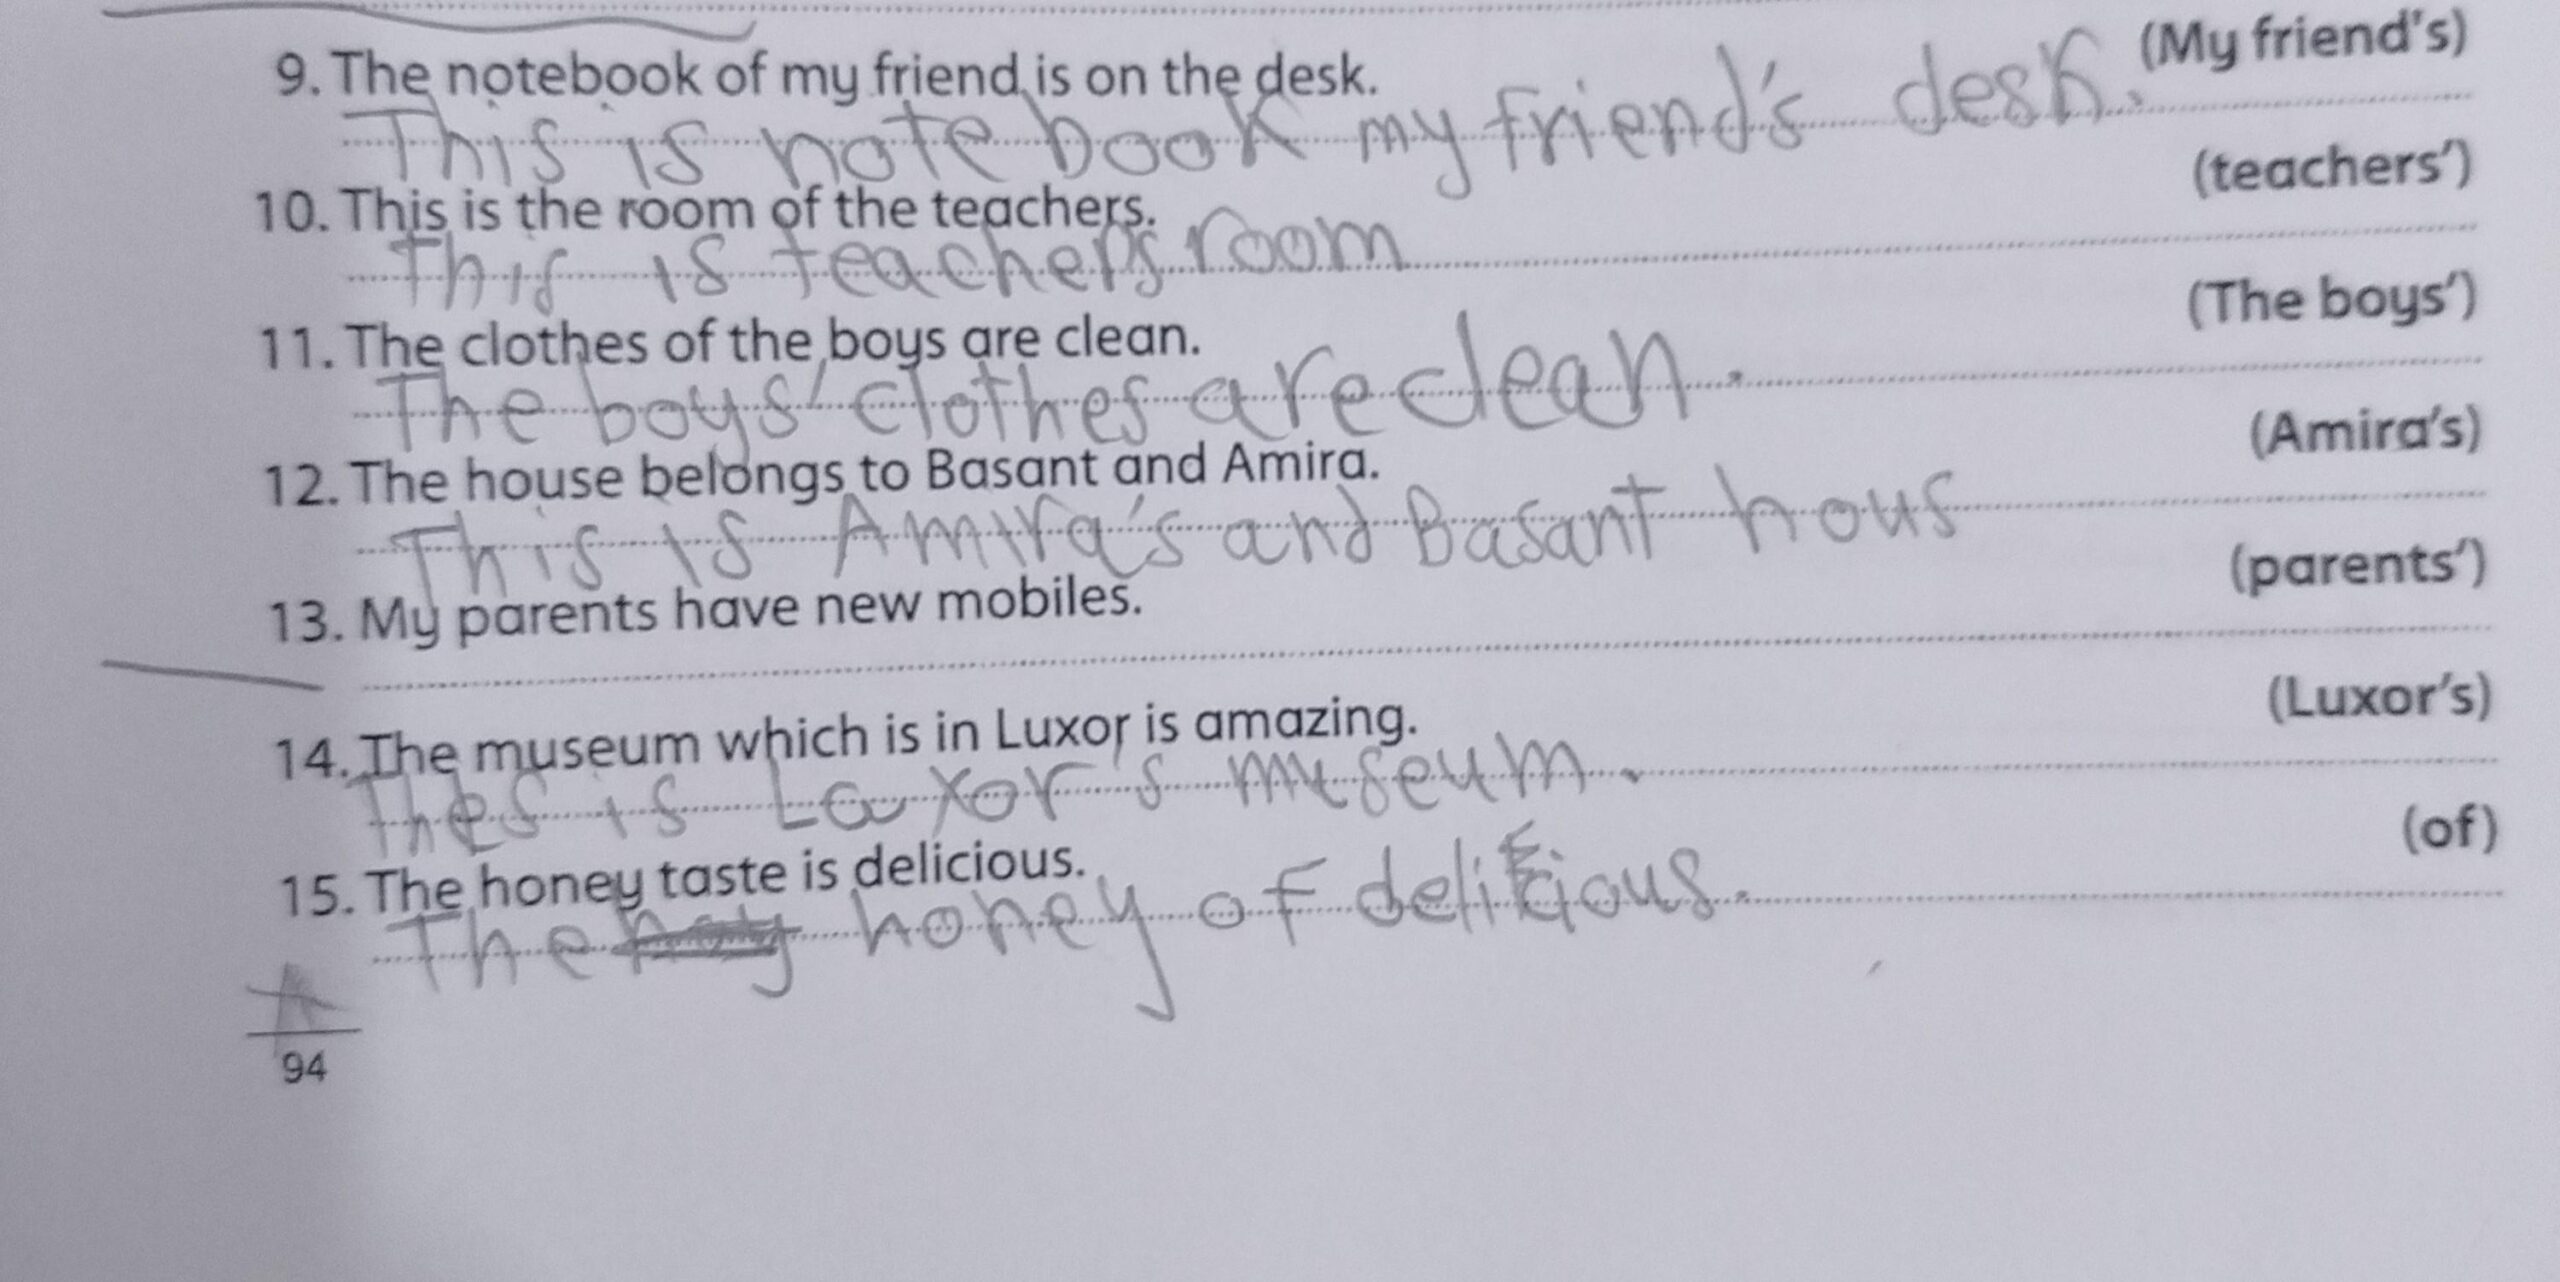 9. The notebook of my friend is on the desk. (My friend's)
This is notebook my friend's desk.
10. This is the room of the teachers. (teachers')
This is teachers room
11. The clothes of the boys are clean. (The boys')
The boys' clothes are clean.
12. The house belongs to Basant and Amira. (Amira's)
This is Amira's and Basant hous
13. My parents have new mobiles. (parents')
14. The museum which is in Luxor is amazing. (Luxor's)
Thes is Laxor's museum.
15. The honey taste is delicious. (of)
The honey of delicious.
94